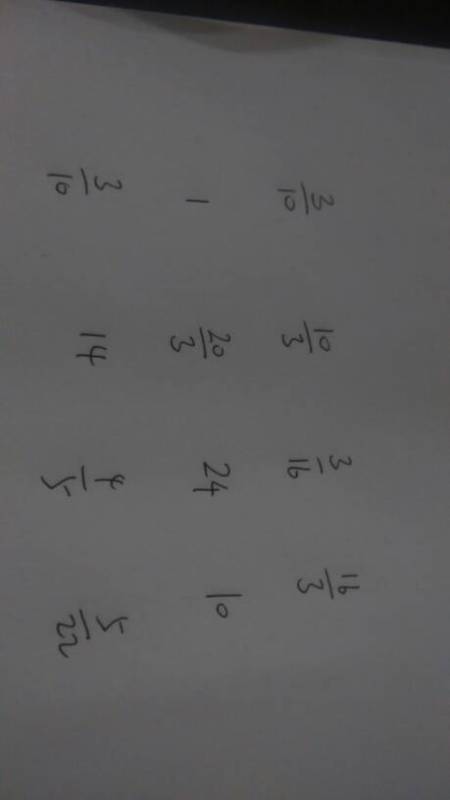 3/10 10/3 3/16 16/3
1 20/3 24 10
3/10 14 4/5 5/22